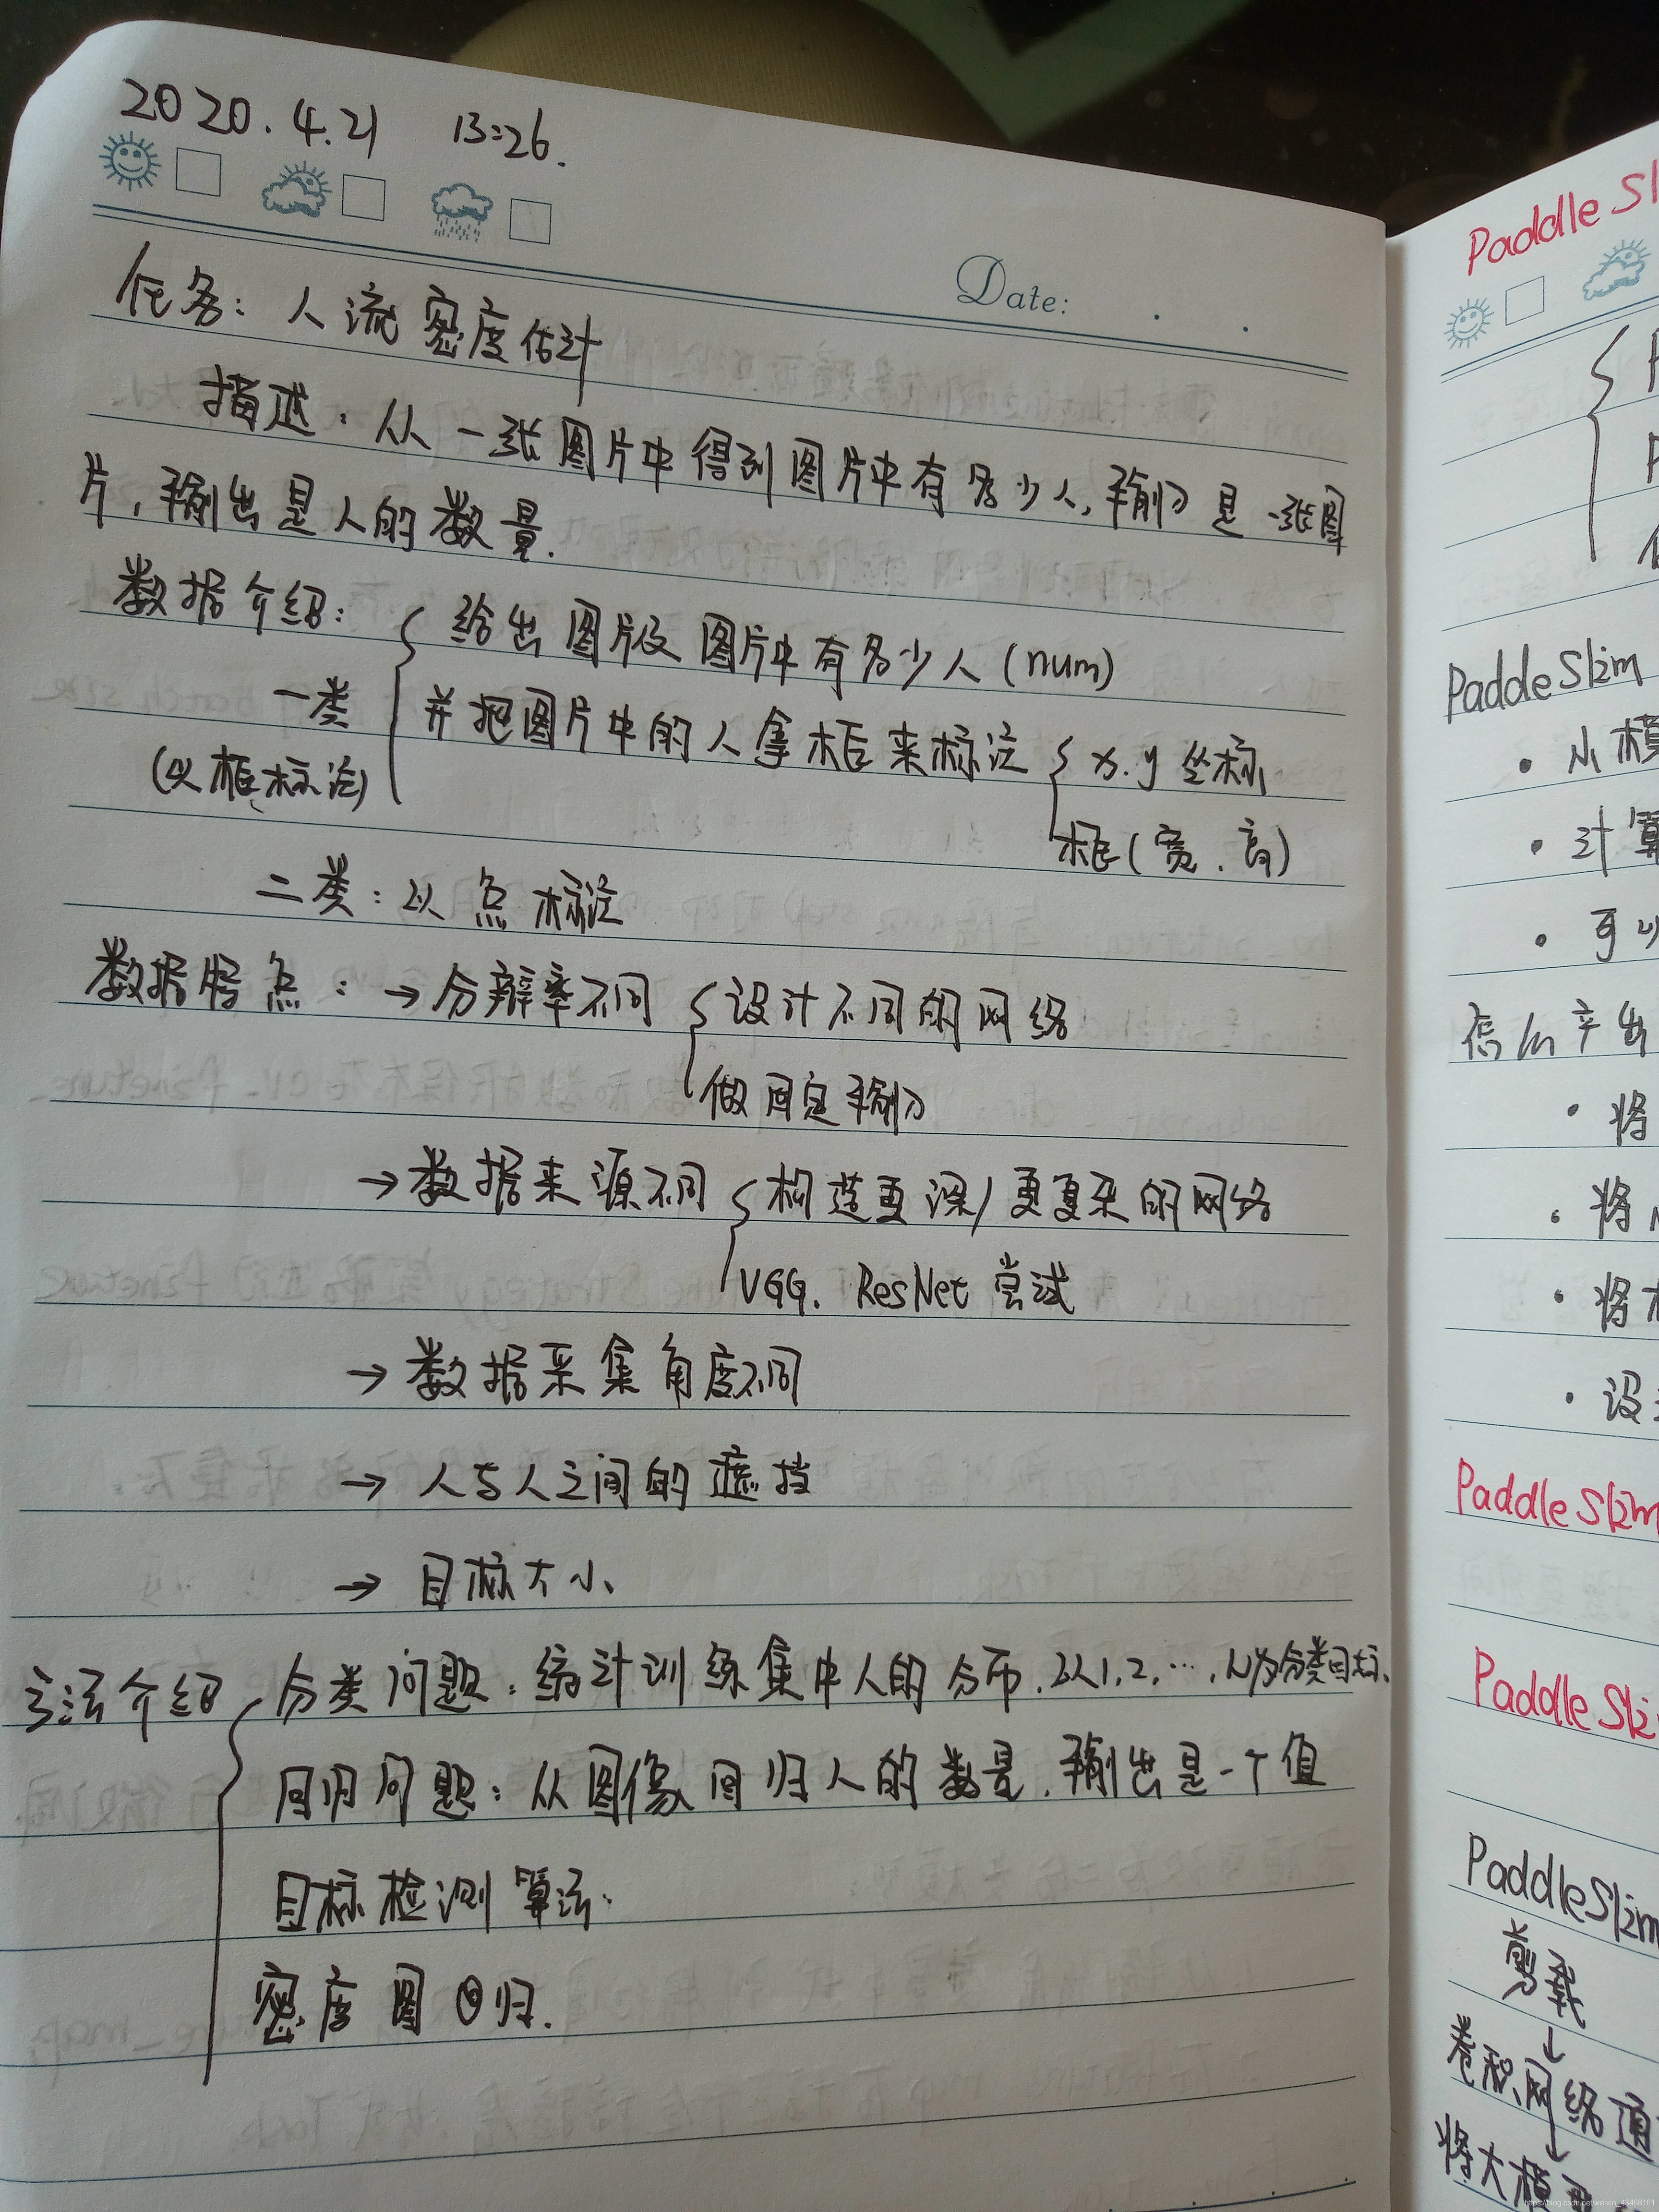 2020.4.21 13:26.
Date:
任务：人流密度估计
描述：从一张图片中得到图片中有多少人，输入是一张图
片，输出是人的数量.
数据介绍：
一类
(以框标注)
给出图片及图片中有多少人 (num)
并把图片中的人拿框来标注
x.y 坐标
框(宽.高)
二类：以点标注
数据特点：→分辨率不同
设计不同的网络
做固定输入
→数据来源不同
构造更深/更复杂的网络
VGG. ResNet 尝试
→数据采集角度不同
→人与人之间的遮挡
→目标大小
方法介绍
分类问题：统计训练集中人的分布.以1,2,…,N为分类目标.
回归问题：从图像回归人的数量.输出是一个值
目标检测算法:
密度图回归.
Paddle Sl
PaddeSlim
·小模
·计算
·可以
怎么产出
·将
·将
·将
·设
PaddleSlim
PaddleSli
PaddleSlim
剪裁
↓
卷积网络通
↓
将大模型
https://blog.csdn.net/weixin_43468161